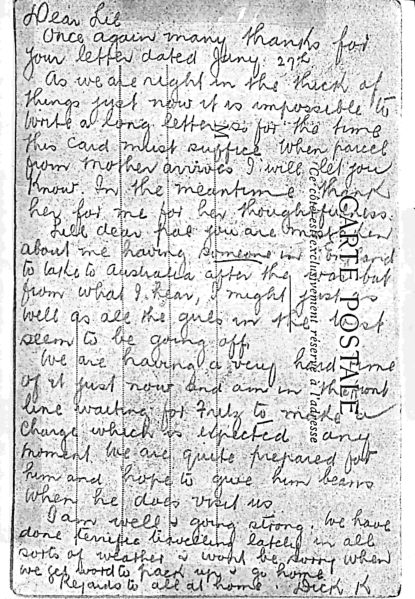 Dear Lil
Once again many thanks for
your letter dated Juny. 27th
As we are right in the thick of
things just now it is impossible to
write a long letter so for the time
this card must suffice. When parcel
from Mother arrives I will let you
know. In the meantime thank
her for me for her thoughtfulness.
Lil dear pal you are mistaken
about me having someone in England
to take to Australia after the war but
from what I hear, I might just as
well as all the girls in the
seem to be going off
We are having a very hard time
of it just now and am in the front
line waiting for Fritz to make a
charge which is expected any
moment. We are quite prepared for
him and hope to give him beans
when he does visit us
I am well & going strong. We have
done terrific travelling lately in all
sorts of weather & wont be sorry when
we get word to pack up & go home
Regards to all at home Dick K
CARTE POSTALE
Ce côté est exclusivement réservé à l'adresse